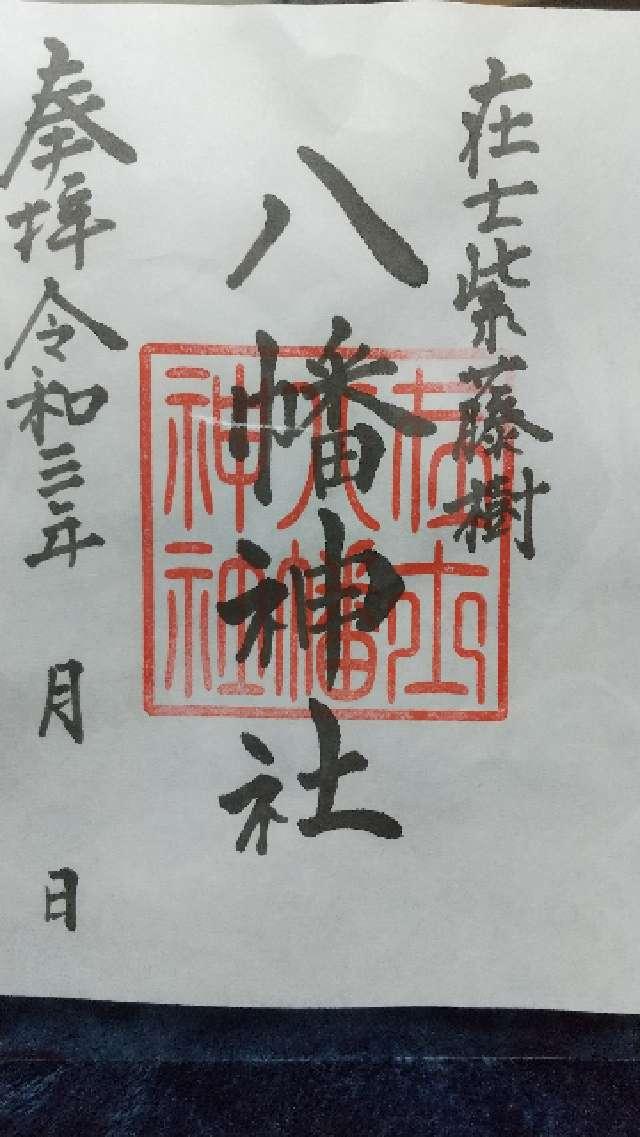 在士紫藤樹
八幡神社
奉拝 令和三年 月 日
在士
八幡
神社